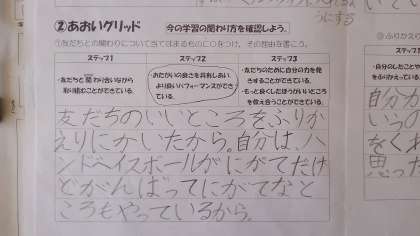 うにする
②あおいグリッド
今の学習の関わり方を確認しよう。
①友だちとの関わりについて当てはまるものに○をつけ、その理由を書こう。
ステップ1
ステップ2
ステップ3
・友だちと関わり合いながら取り組むことができている。
・おたがいの良さを共有しあいより良いパフォーマンスができている。
・友だちのために自分の力を発することができている。
・もっと良くしたほうがいいところを教え合うことができている。
友だちのいいところをふりか
えりにかいたから。自分は、ハ
ンドベイスボールがにがてだけ
どがんばってにがてなと
ころもやっているから。
②ふりかえ
自分が
思った